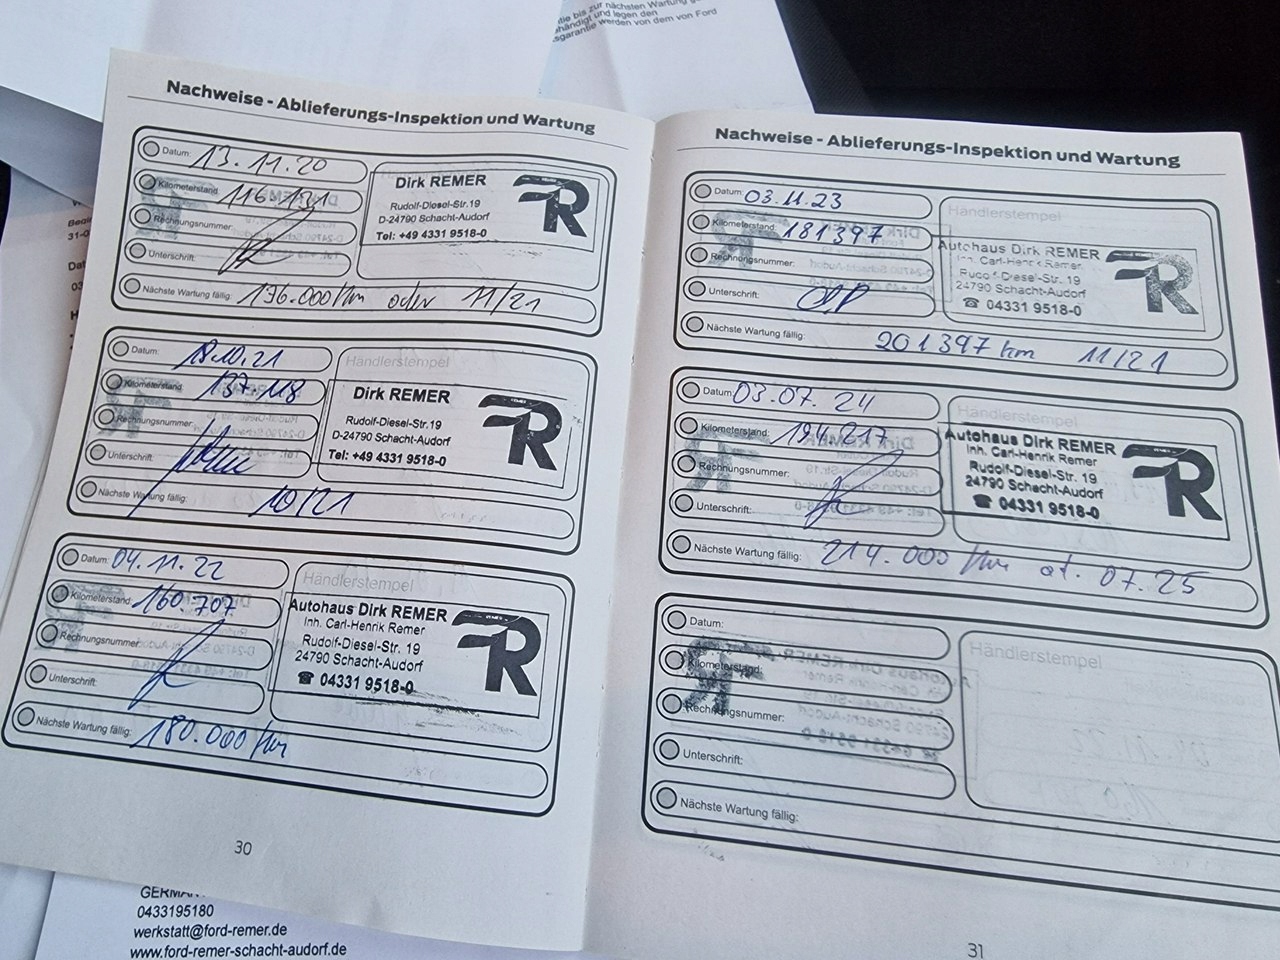 tie bis zur nächsten Wartung
händigt und legen den
sgarantie werden von dem von Ford
Nachweise - Ablieferungs-Inspektion und Wartung
Datum: 13.11.20
Kilometerstand: 116.131
Rechnungsnummer:
Unterschrift:
Nächste Wartung fällig: 136.000 km oder 11/21
Dirk REMER
Rudolf-Diesel-Str.19
D-24790 Schacht-Audorf
Tel: +49 4331 9518-0
R
Datum: 18.10.21
Kilometerstand: 137.118
Rechnungsnummer:
Unterschrift:
Nächste Wartung fällig: 10/21
Händlerstempel
Dirk REMER
Rudolf-Diesel-Str.19
D-24790 Schacht-Audorf
Tel: +49 4331 9518-0
R
Datum: 04.11.22
Kilometerstand: 160.707
Rechnungsnummer:
Unterschrift:
Nächste Wartung fällig: 180.000 km
Händlerstempel
Autohaus Dirk REMER
Inh. Carl-Henrik Remer
Rudolf-Diesel-Str. 19
24790 Schacht-Audorf
☎ 04331 9518-0
R
30
Nachweise - Ablieferungs-Inspektion und Wartung
Datum: 03.11.23
Kilometerstand: 181397
Rechnungsnummer:
Unterschrift:
Nächste Wartung fällig: 201397 km 11/21
Händlerstempel
Autohaus Dirk REMER
Inh. Carl-Henrik Remer
Rudolf-Diesel-Str. 19
24790 Schacht-Audorf
☎ 04331 9518-0
R
Datum: 03.07.24
Kilometerstand: 194.217
Rechnungsnummer:
Unterschrift:
Nächste Wartung fällig: 214.000 km od. 07.25
Händlerstempel
Autohaus Dirk REMER
Inh. Carl-Henrik Remer
Rudolf-Diesel-Str. 19
24790 Schacht-Audorf
☎ 04331 9518-0
R
Datum:
Kilometerstand:
Rechnungsnummer:
Unterschrift:
Nächste Wartung fällig:
Händlerstempel
31
0433195180
werkstatt@ford-remer.de
www.ford-remer-schacht-audorf.de